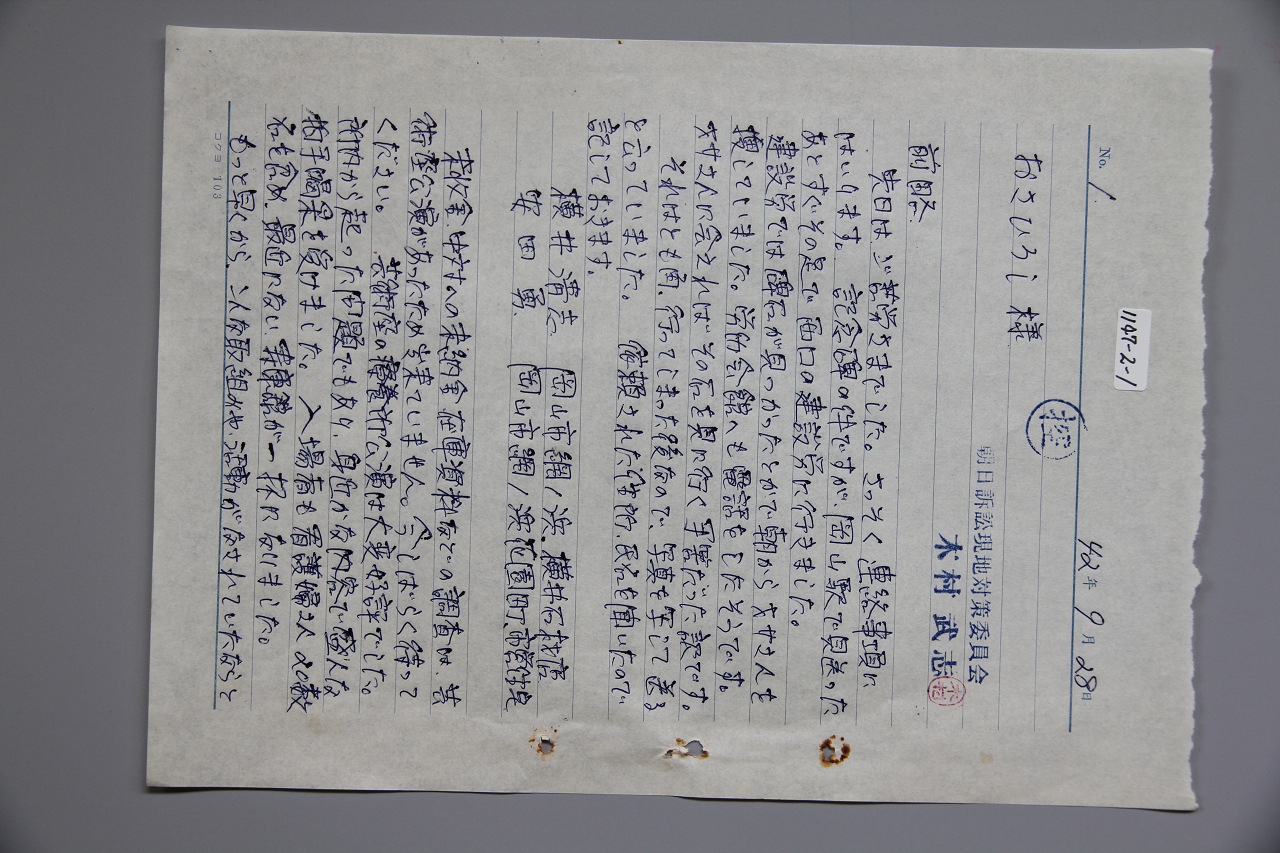 1147-2-1
No. 1
42年 9月 28日
おさひろし 様
控
朝日訴訟現地対策委員会
木村武志
前略
先日はご苦労さまでした。さっそく連絡事項に
はいります。記念碑の件ですが、岡山駅で見送った
あとすぐその足で西口の建設労に行きました。
建設労では碑石が見つかったとかで朝から 井さんを
捜していました。労働会館へも電話をしたそうです。
井さんに会えればその石を見に行く手筈だった訳です。
それはとも角、行ってしまった後なので、写真を 送る
と言っていました。 依頼された住所、氏名を聞いたので
記しておきます。
横井清志 岡山市網ノ浜 横井石材店
岡山市網ノ浜花園町市営住宅
未収金、中対への未納金、在庫資料などの調査は、芸
術座公演があったため出来ていません。今しばらく待って
ください。 芸術座の 公演は大変好評でした。
から起った問題でもあり、身近かな内容で盛んな
拍手喝采を受けました。入場者も看護婦さん20数
名も含め、最近にない 一杯になりました。
もっと早くから、こんな取組みや活動がなされていたならと
コクヨ 103